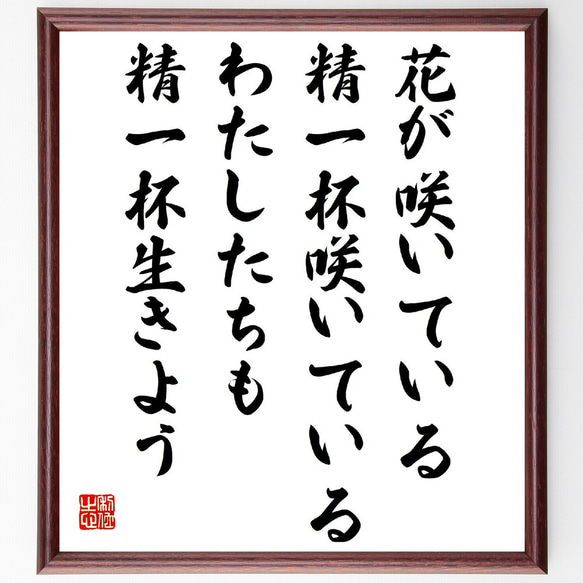 花が咲いている
精一杯咲いている
わたしたちも
精一杯生きよう